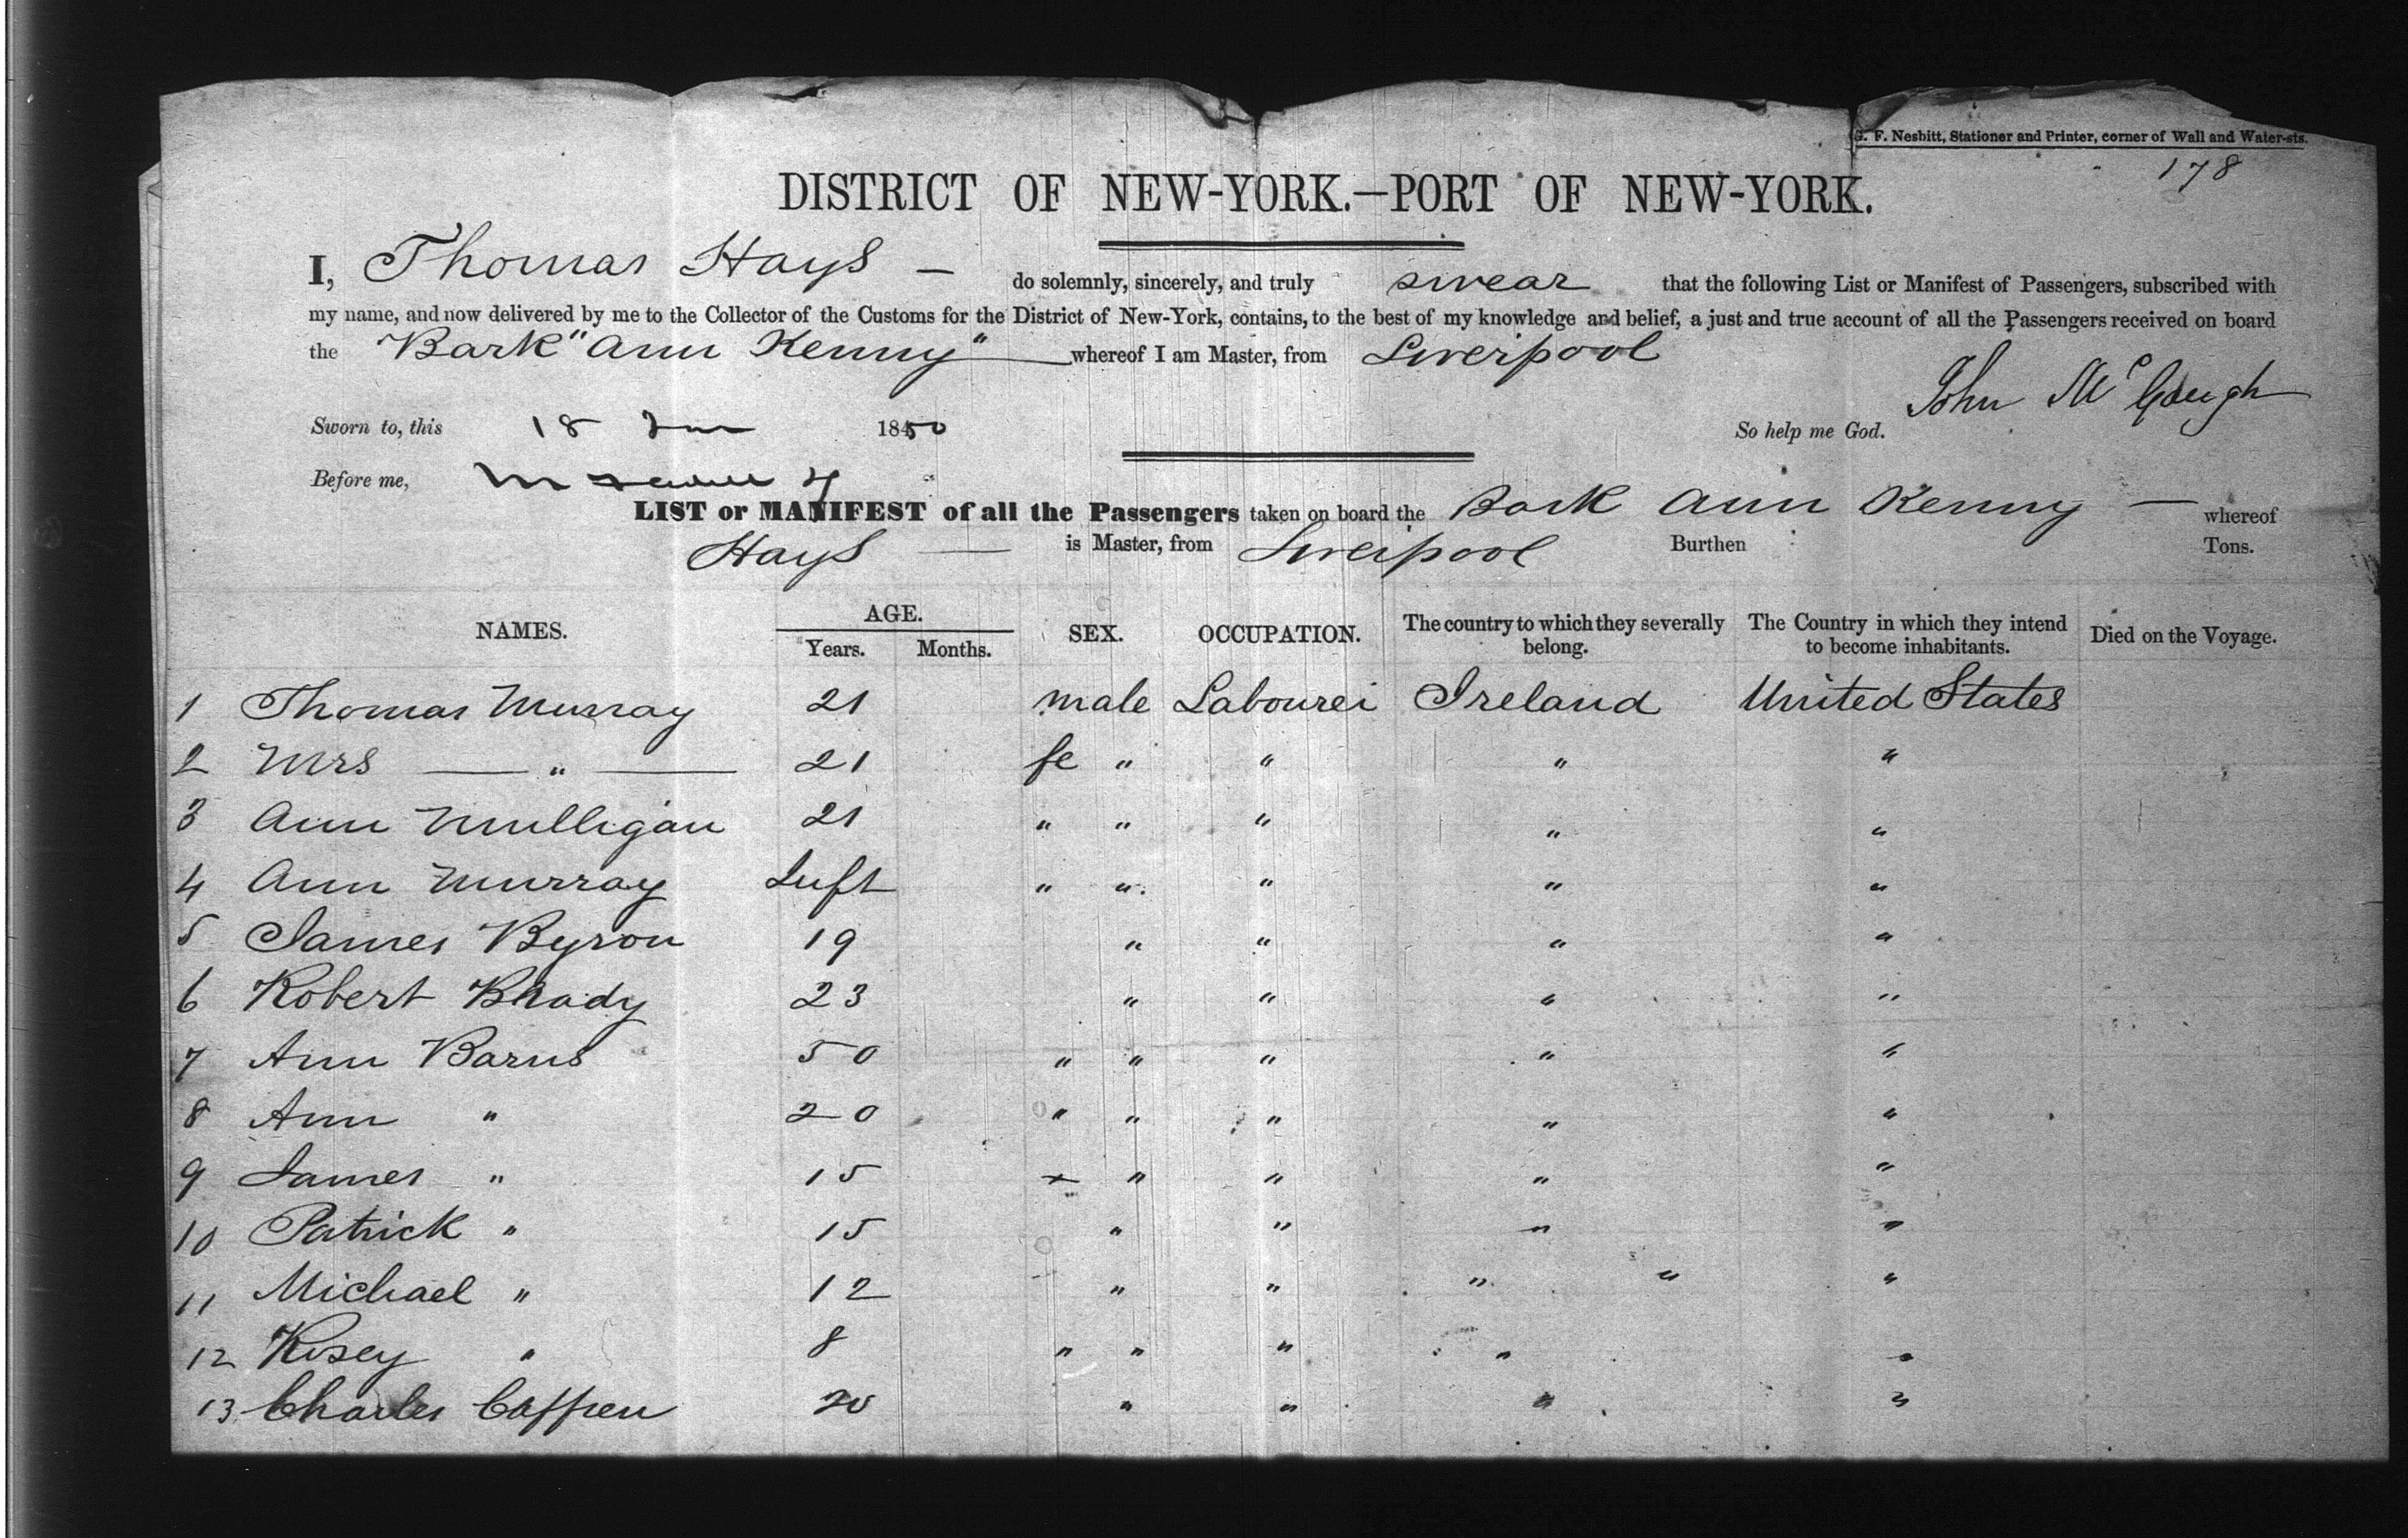 G. F. Nesbitt, Stationer and Printer, corner of Wall and Water-sts.
178
DISTRICT OF NEW-YORK.—PORT OF NEW-YORK.
I, Thomas Hays — do solemnly, sincerely, and truly swear that the following List or Manifest of Passengers, subscribed with
my name, and now delivered by me to the Collector of the Customs for the District of New-York, contains, to the best of my knowledge and belief, a just and true account of all the Passengers received on board
the "Bark "Ann Kenny" whereof I am Master, from Liverpool
John McGough
Sworn to, this 18 1850 So help me God.
Before me,
LIST or MANIFEST of all the Passengers taken on board the Bark Ann Kenny — whereof
Hays — is Master, from Liverpool Burthen Tons.
NAMES. AGE. Years. Months. SEX. OCCUPATION. The country to which they severally belong. The Country in which they intend to become inhabitants. Died on the Voyage.
1 Thomas Murray 21 male Labourer Ireland United States
2 Mrs — " — 21 fe " " " "
3 Ann Mulligan 21 " " " " "
4 Ann Murray Inft " " " " "
5 James Byron 19 " " " "
6 Robert Brady 23 " " " "
7 Ann Barns 50 " " " " "
8 Ann " 20 " " " " "
9 James " 15 " " " "
10 Patrick " 15 " " " "
11 Michael " 12 " " " " "
12 Rosey " 8 " " " " "
13 Charles 20 " " " "